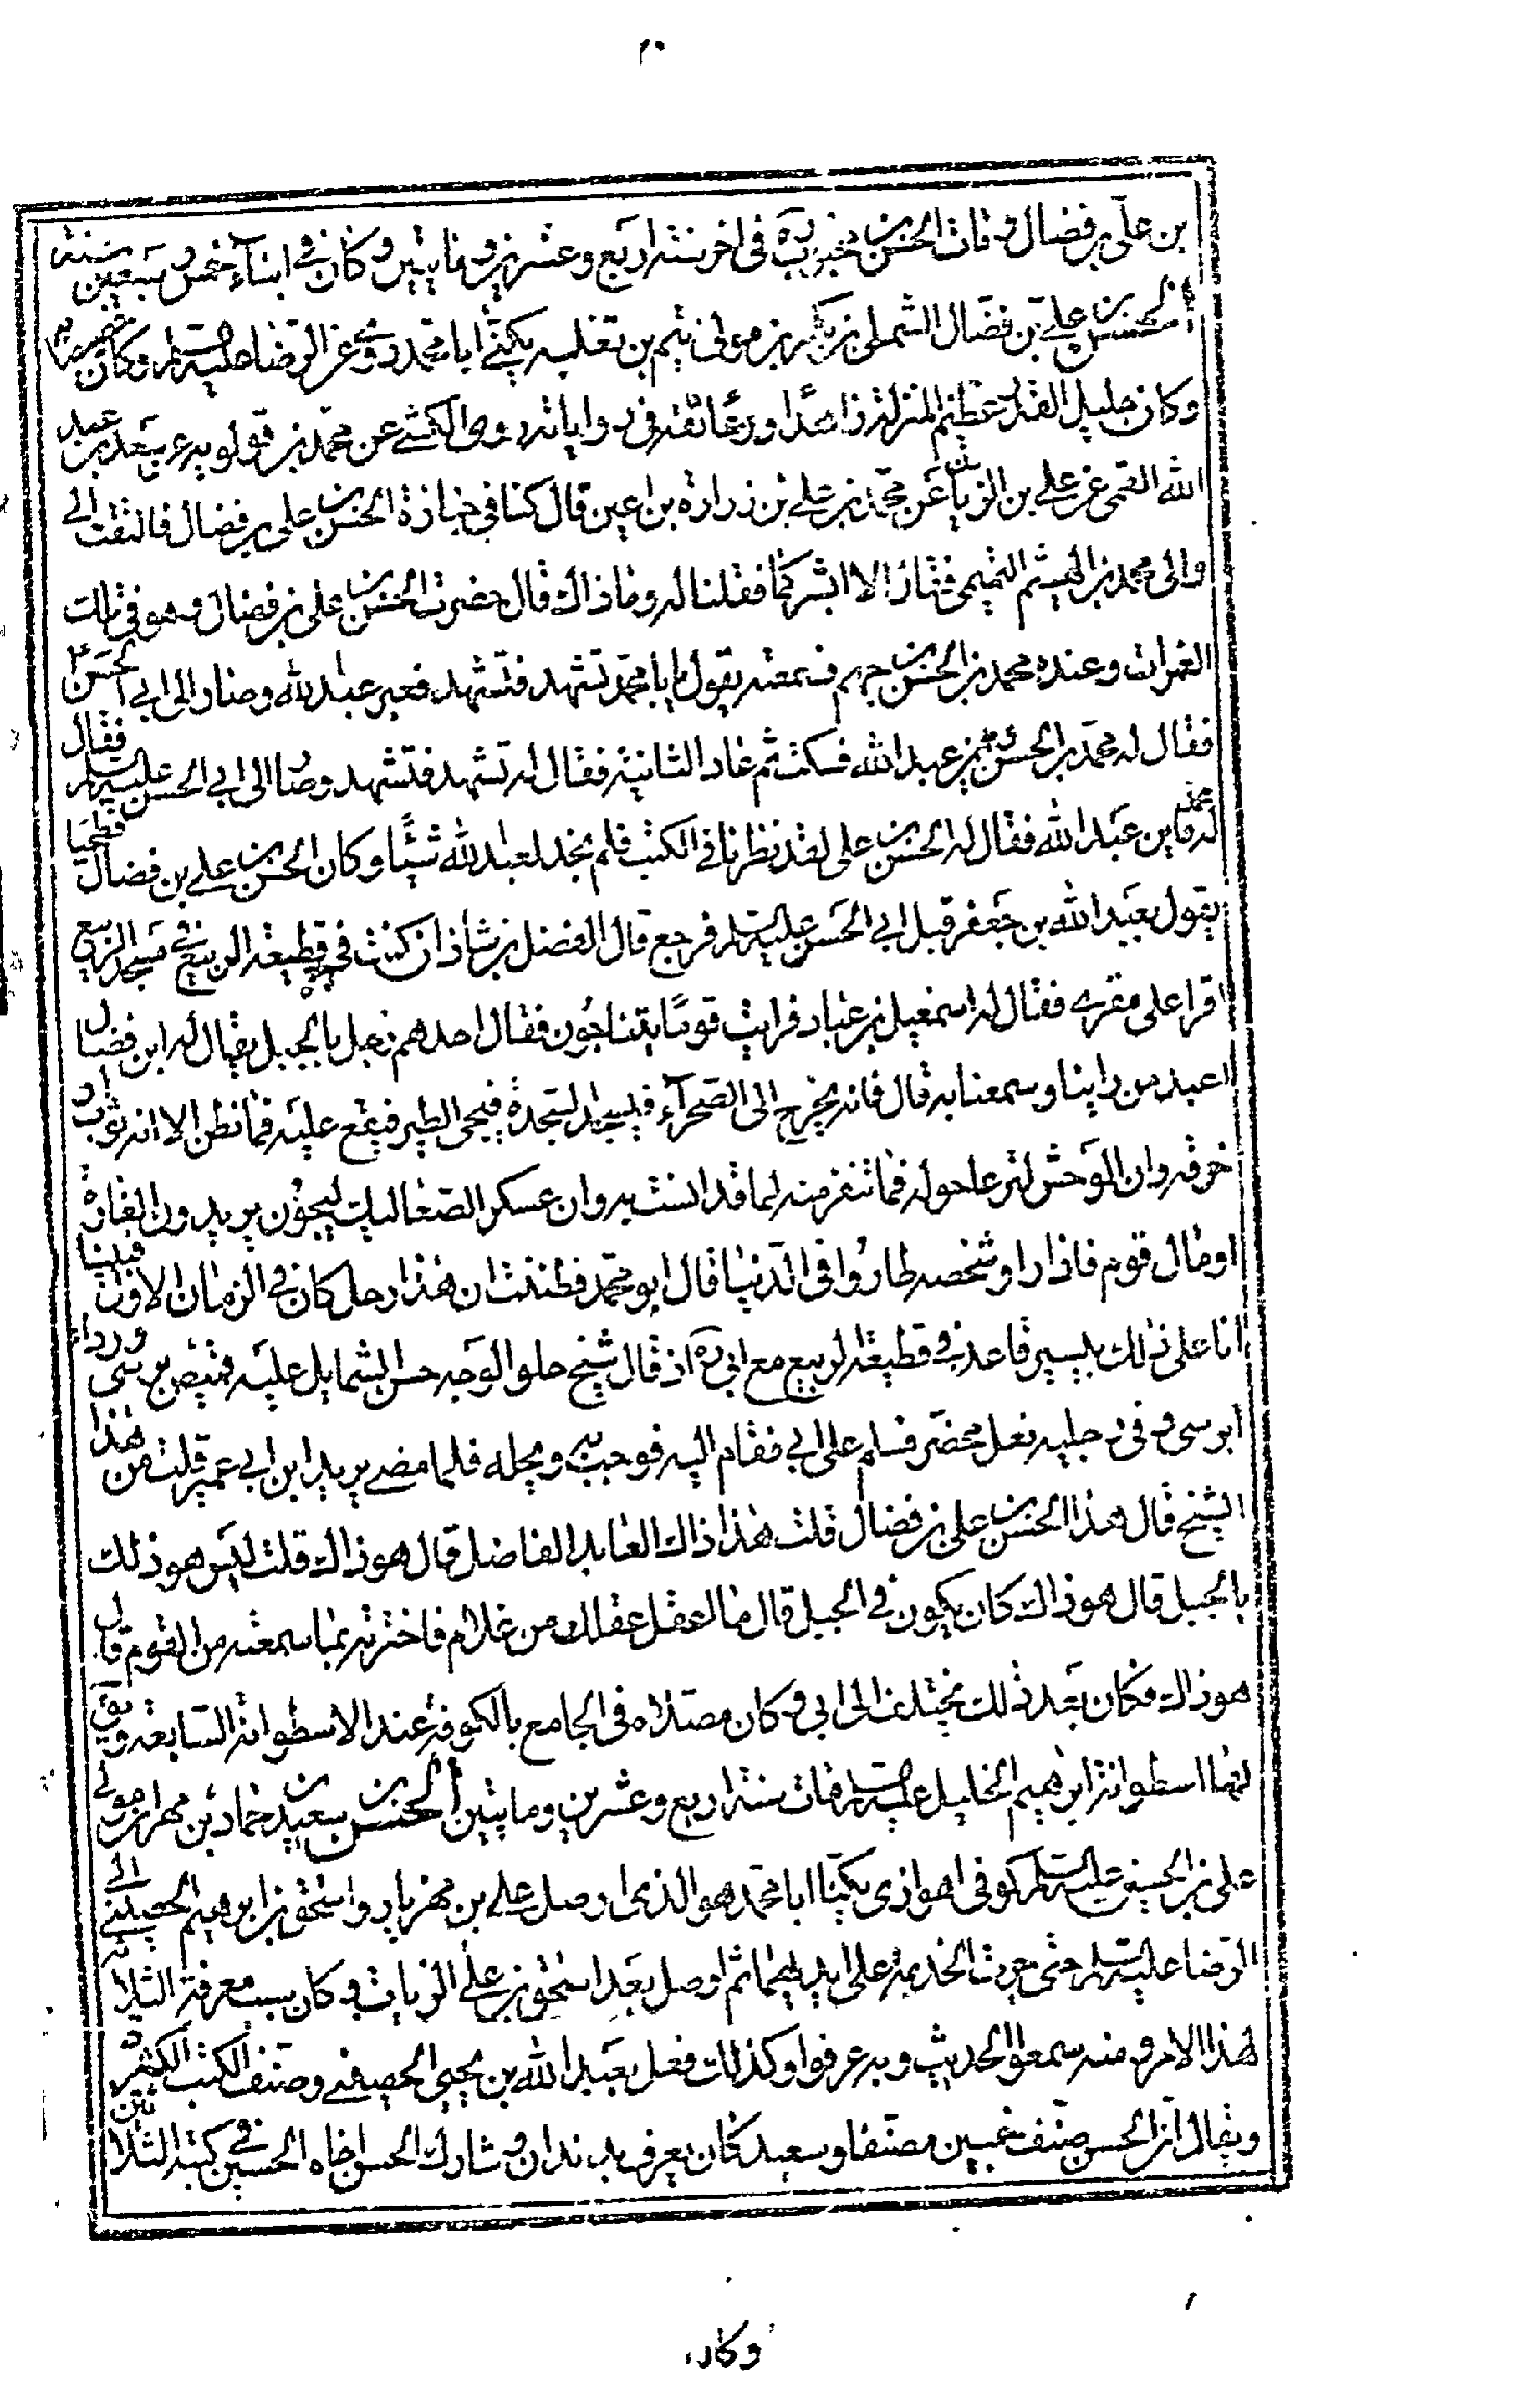 ٢٠
بن علي بن فضال ومات الحسن بن محبوب ره في اخر سنة اربع وعشرين ومايتين وكان في ابناء خمس وسبعين سنة
الحسن بن علي بن فضال التيملي بن ربيعة بن بكر مولى تيم بن ثعلبه يكنى ابا محمد روى عن الرضا عليه السلم وكان خصيصا به
وكان جليل القدر عظيم المنزلة زاهدا ورعا ثقة في رواياته روى الكشي عن محمد بن قولويه عن سعد بن عبد
الله القمي عن علي بن الريان عن محمد بن علي بن زرارة بن اعين قال كنا في جنازة الحسن بن علي بن فضال فالتفت الي
والى محمد بن الهيثم التميمي فقال الا ابشركما فقلنا له وما ذاك قال حضرت الحسن بن علي بن فضال وهو في تلك
الغمرات وعنده محمد بن الحسن بن جهم فسمعته يقول يا با محمد تشهد فتشهد فعبر عبد الله وصار الى ابي الحسن ع
فقال له محمد بن الحسن واين عبد الله فسكت ثم عاد الثانية فقال له تشهد فتشهد وصار الى ابي الحسن عليه السلم فقال
له محمد فاين عبد الله فقال له الحسن بن علي لقد نظرنا في الكتب فلم نجد لعبد الله شيئا وكان الحسن بن علي بن فضال فطحيا
يقول بعبد الله بن جعفر قبل ابي الحسن عليه السلم فرجع قال الفضل بن شاذان كنت في قطيعة الربيع في مسجد الربيع
اقرا على مقرئ فقال له اسمعيل بن عباد فرايت قوما يتناجون فقال احدهم رجل بالجبل يقال له ابن فضال
اعبد من راينا وسمعنا به قال فانه يخرج الى الصحراء فيسجد السجدة فيجئ الطير فيقع عليه فما نظن الا انه ثوب او
خرقه وان الوحش لترعا حوله فما تنفر منه لما قد انست به وان عسكر الصعاليك ليجؤن يريدون الغارة
او مال قوم فاذا راو شخصه طاروا في الدنيا قال ابو محمد فظننت ان هذا رجل كان في الزمان الاول فبينا
انا على ذلك بيسير قاعد في قطيعة الربيع مع ابي ره اذ قال شيخ حلو الوجه حسن الشمايل عليه قميص نرسى ورداء
نرسى وفي رجليه نعل مخضر فسلم على ابي فقام اليه فرحب به وبجله فلما مضى يريد ابن ابي عمير قلت من هذا
الشيخ قال هذا الحسن بن علي بن فضال قلت هذا ذاك العابد الفاضل قال هو ذاك قلت ليس هو ذلك
بالجبل قال هو ذاك كان يكون في الجبل قال ما اقل عقلك من غلام فاخبرته بما سمعته من القوم قال
هو ذاك فكان بعد ذلك يختلف الى ابي وكان مصلاه في الجامع بالكوفة عند الاسطوانة السابعة ويق
لها اسطوانة ابرهيم الخليل عليه السلم مات سنة اربع وعشرين ومايتين الحسن بن سعيد بن حماد بن مهران مولى
علي بن الحسين عليه السلم كوفي اهوازى يكنا ابا محمد هو الذى اوصل علي بن مهزيار واسحق بن ابرهيم الحضينى الى
الرضا عليه السلم حتى جرت الخدمة على ايديهما ثم اوصل بعد اسحق بن علي الريان وكان سبب معرفة الثلاثة
لهذا الامر ومنه سمعوا الحديث وبه عرفوا وكذلك فعل بعبد الله بن يحيى الحصيني وصنف الكتب الكثيره
ويقال ان الحسن صنف خمسين مصنفا وسعيد كان يعرف بدندان وشارك الحسن اخاه الحسين في كتبه الثلاثين
وكان